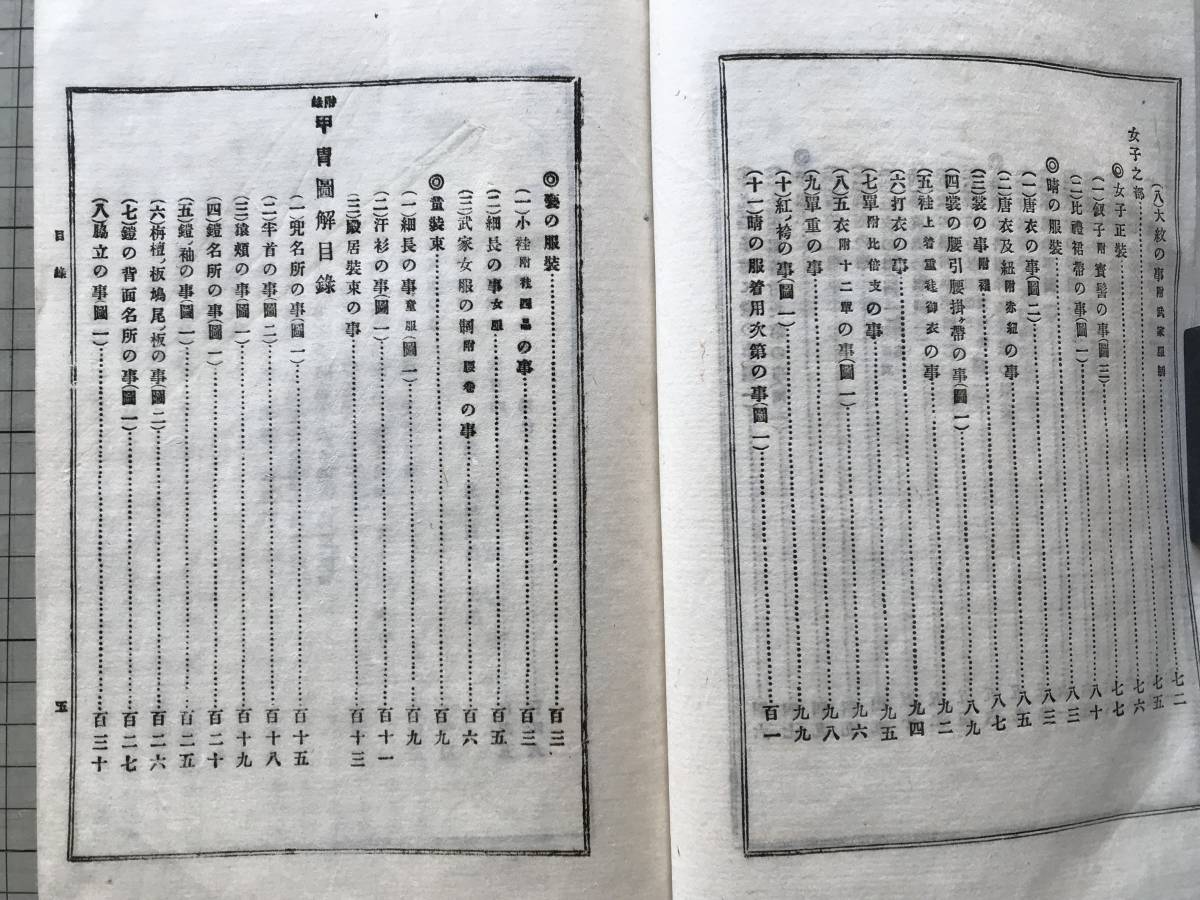 (八)大紋の事附武家服制……七二
女子之部……七五
◎女子正裝……七六
(一)釵子附寶髻の事(圖三)……七七
(二)比禮裙帶の事(圖一)……八十
◎晴の服裝……八三
(一)唐衣の事(圖二)……八三
(二)唐衣及紐附赤紐の事……八五
(三)裳の事附……八七
(四)裳の腰引腰掛ヶ帶の事(圖一)……八九
(五)袿上着重袿御衣の事……九二
(六)打衣の事……九四
(七)單附比倍支の事……九五
(八)五衣附十二單の事(圖一)……九六
(九)單重の事……九八
(十)紅ノ袴の事(圖一)……九九
(十一)晴の服着用次第の事(圖一)……百一
◎褻の服裝……百三
(一)小袿附袿四品の事……百三
(二)細長の事女服……百五
(三)武家女服の制附腰卷の事……百六
◎童裝束……百九
(一)細長の事童服(圖一)……百九
(二)汗衫の事(圖一)……百十一
(三)殿居裝束の事……百十三
附錄甲冑圖解目錄
(一)兜名所の事(圖一)……百十五
(二)半首の事(圖二)……百十八
(三)猿頬の事(圖一)……百十九
(四)鎧名所の事(圖一)……百二十
(五)鎧ノ袖の事(圖一)……百二五
(六)栴檀ノ板鳩尾ノ板の事(圖二)……百二六
(七)鎧の背面名所の事(圖一)……百二七
(八)脇立の事(圖一)……百三十
目錄
五